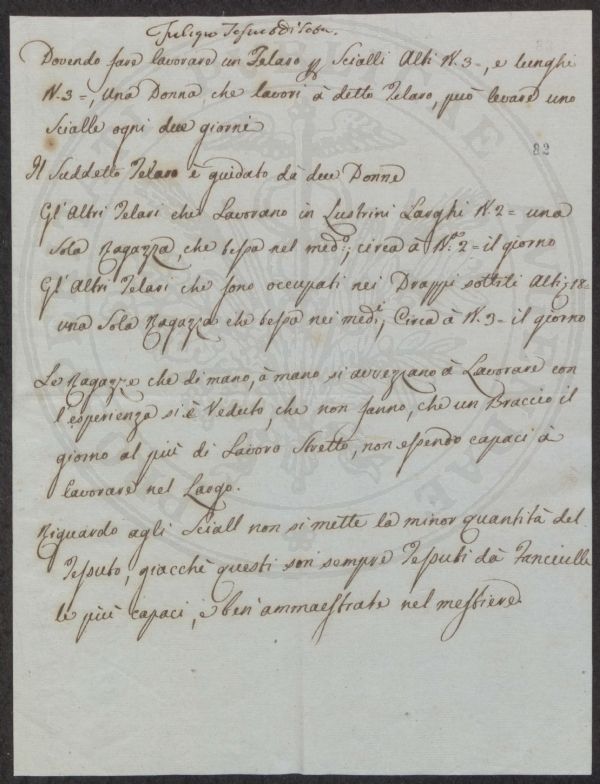 Fuligno Tessuto di Seta.
Dovendo fare lavorare un Telaro p Scialli Alti N. 3=, e lunghi
N. 3=, una Donna, che lavori à detto Telaro, può levare uno
Scialle ogni due giorni
82
Il Suddetto Telaro è guidato dà due Donne
Gl'Altri Telari che Lavorano in Lustrini Larghi N. 2= una
Sola Ragazza, che tessa nel med.º; circa à N.º 2= il giorno
Gl'Altri Telari che sono occupati nei Drappi sottili Alti 18=
una Sola Ragazza che tessa nei med.i, Circa à N. 3= il giorno
Le Ragazze che di mano, à mano si avvezzano à Lavorare con
l'esperienza si è Veduto, che non fanno, che un Braccio il
giorno al più di Lavoro Stretto, non essendo capaci à
lavorare nel Largo.
Riguardo agli Sciall non si mette la minor quantità del
Tessuto, giacchè questi son sempre Tessuti dà Fanciulle
le più capaci, e ben'ammaestrate nel mestiere.